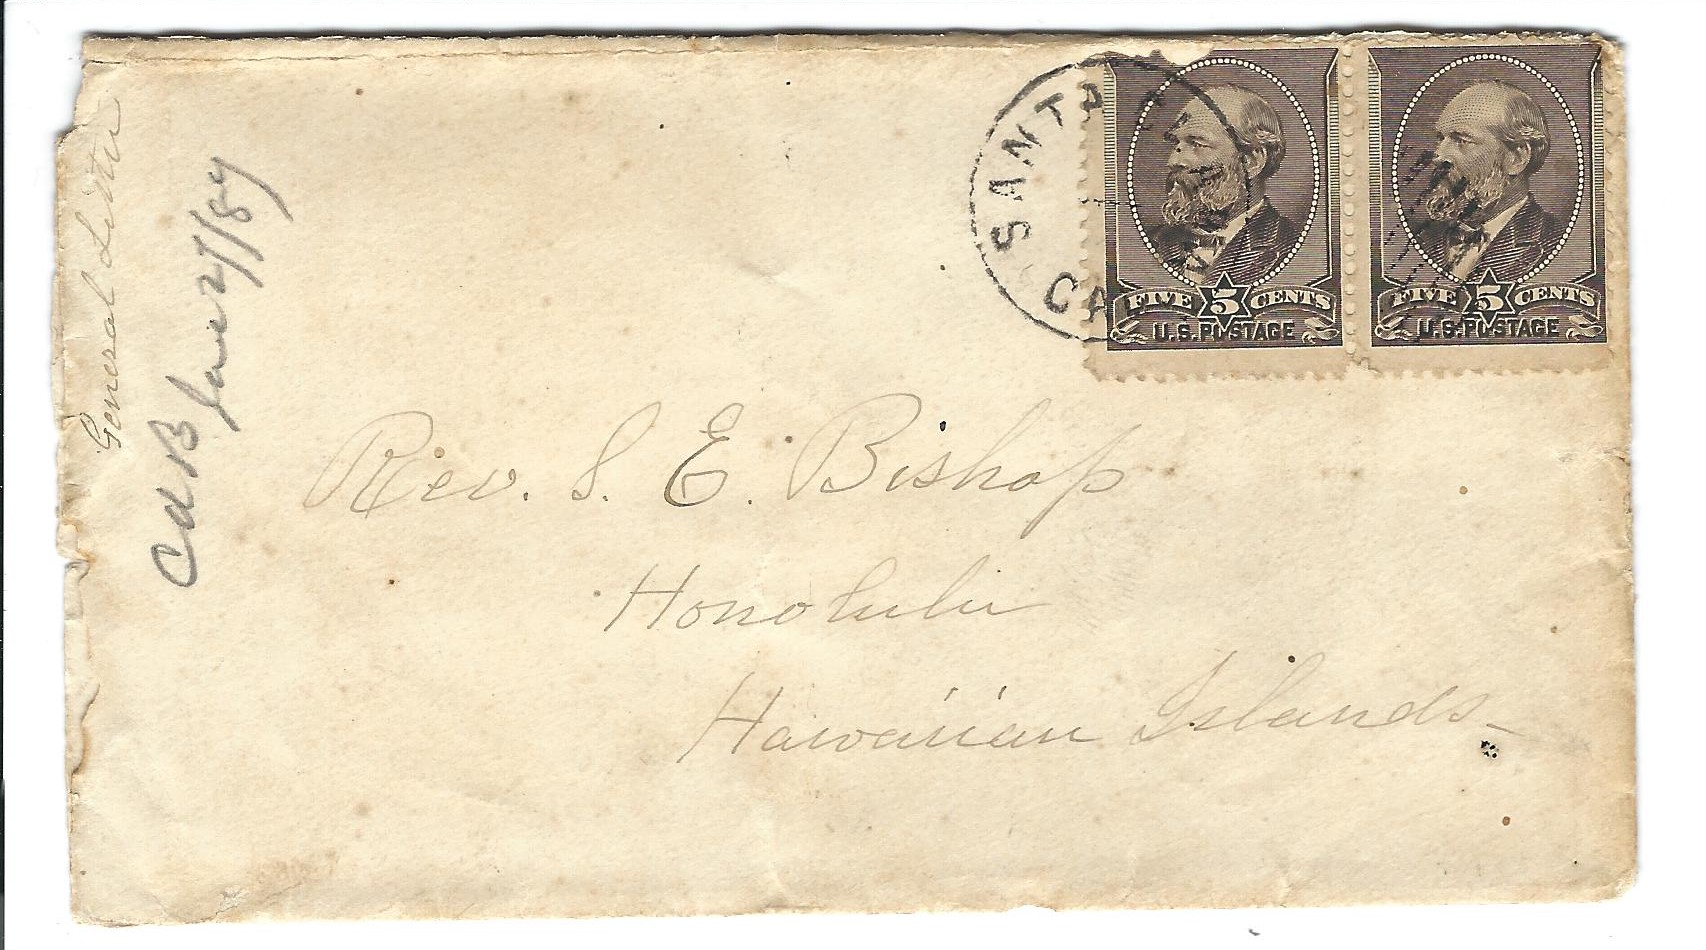 General Letter
CUB June 27/87
SANTA BARBARA
CAL
FIVE 5 CENTS
U.S. POSTAGE
FIVE 5 CENTS
U.S. POSTAGE
Rev. S. E. Bishop
Honolulu
Hawaiian Islands